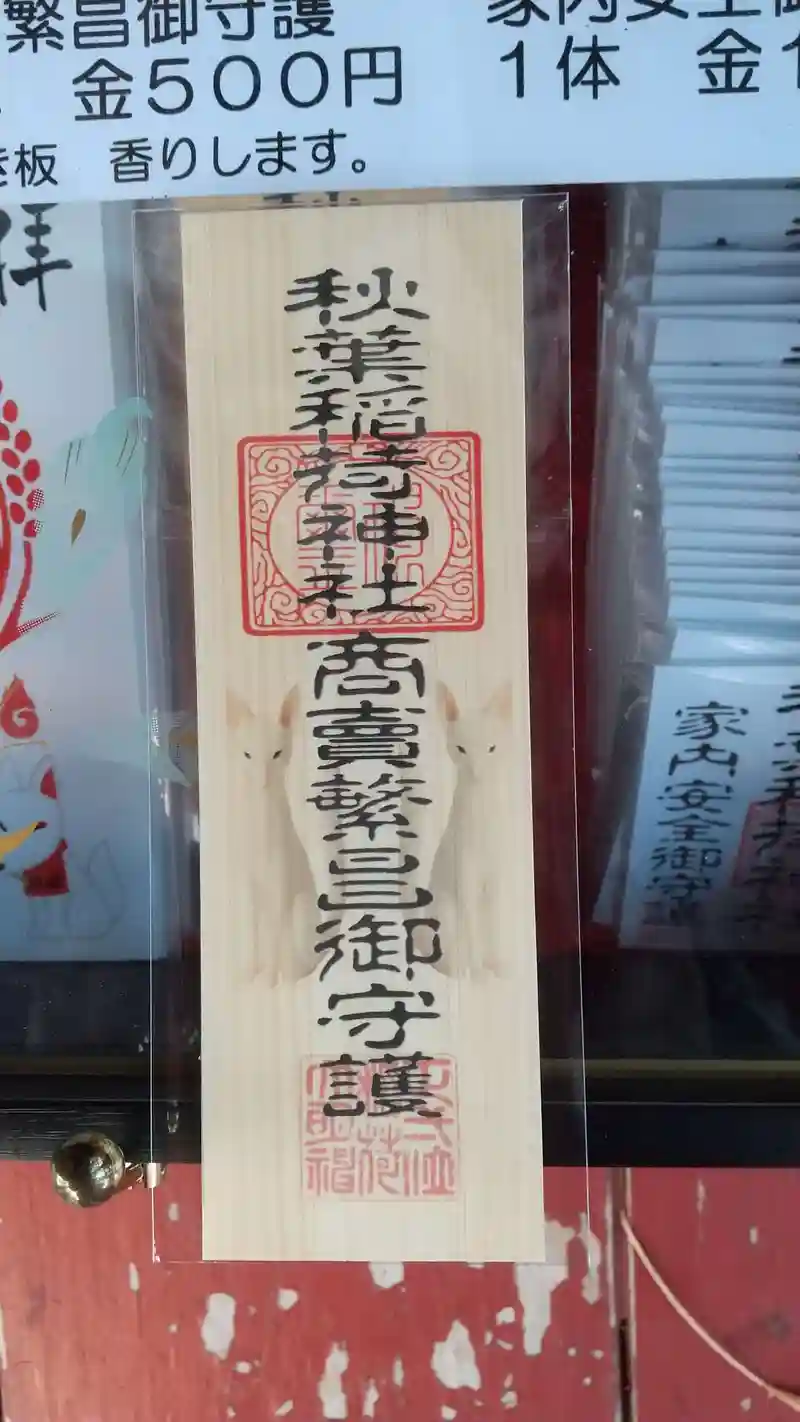 繁昌御守護
金５００円
板　香りします。
家内安全御
１体　金１
祥
秋葉稲荷神社商賣繁昌御守護
家内安全御守護